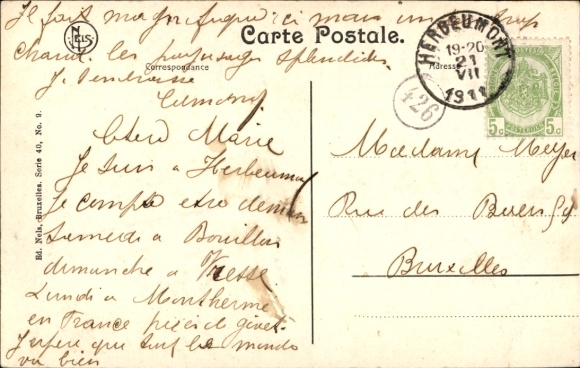 Il fait magnifique ici mais un peu trop
chaud. les paysages splendides
Je t'embrasse
Edmond
Carte Postale.
Correspondance
Adresse
NELS
HERBEUMONT
19-20
21
VII
1911
426
5c 5c
Chère Marie
Je suis a Herbeumont
Je compte etre demain
Samedi a Bouillon
dimanche a Vresse
Lundi a Montherme
en France près de givet.
J'espere que tout le monde
va bien
Madame Meyer
Rue des
Bruxelles
Ed. Nels, Bruxelles. Serie 40, No. 9.